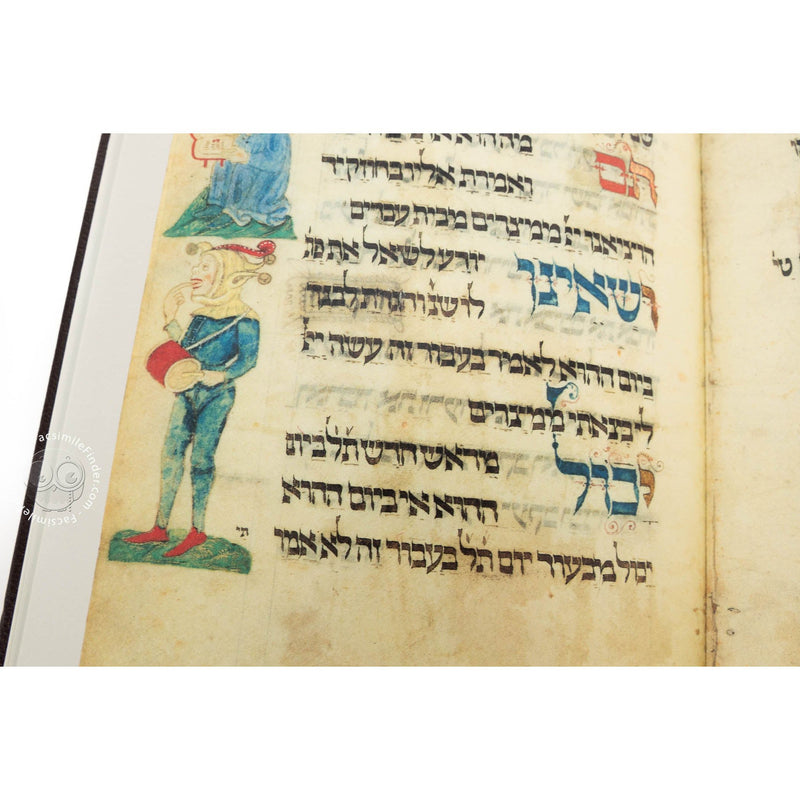 תם
ואמרת אליו בחוזק יד
הוציאנו יי ממצרים מבית עבדים
ושאינו יודע לשאל את פת
לו שנ והגדת לבנך
ביום ההוא לאמר בעבור זה עשה יי
לי בצאתי ממצרים
יכול מראש חדש תל בית
ההוא אי ביום ההוא
יכול מבעוד יום תל בעבור זה לא אמ
FacsimileFinder.com